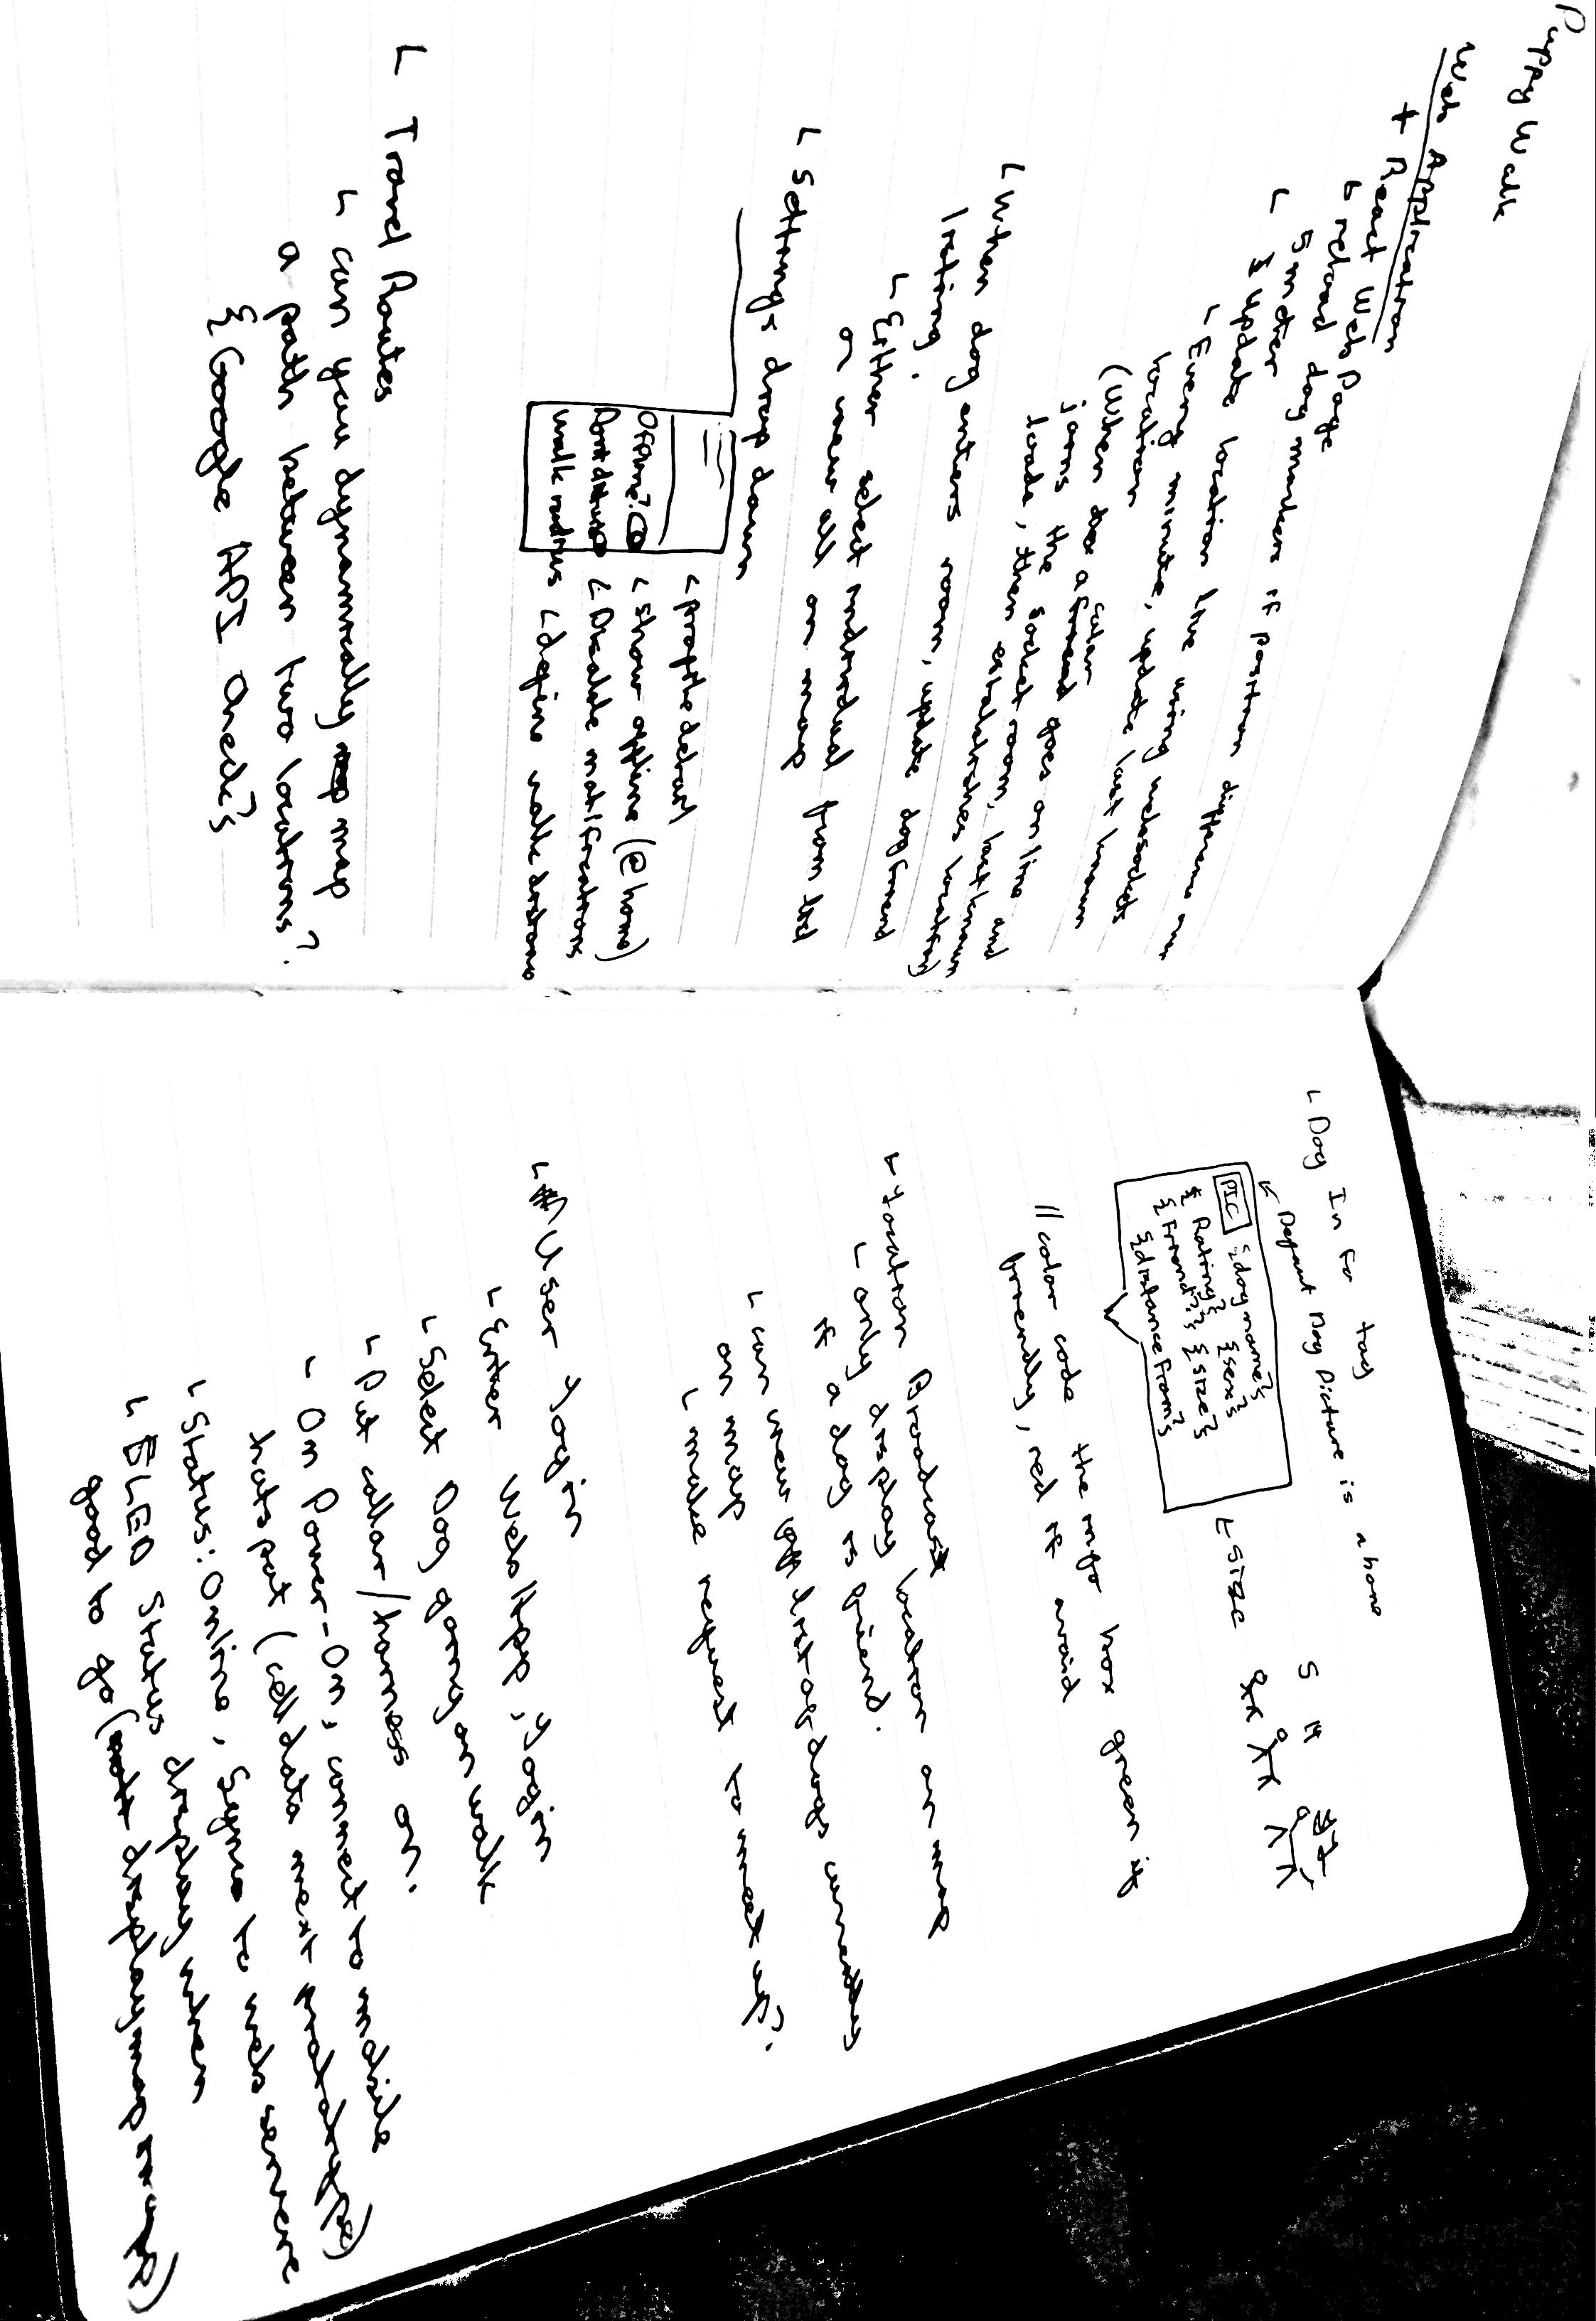 Puppy Walk
Web Application
+ React Web Page
reload dog markers if position difference over
5 meter
Update location live using websockets
Every minute, update last known
location
(When a collar goes online and
joins the socket room, last known
loads, then establishes location)
When dog enters room, update dog friend
listing.
Either select individual from list
or view all on map
Settings drop down
< profile detail
Offline? < show offline (@ home)
Dont disturb < Disable notifications
walk radius < define walk distance
Travel Routes
can you dynamically map
a path between two locations?
{Google API Check}
Dog Info tag
Default Dog Picture is a bone
PIC {dog name}
{Rating} {sex}
{Friend??} {size}
{distance from}
S M
size
// color code the info box green if
friendly, red if avoid
Location Broadcast
only display location on map
if a dog is friend.
can view list of dogs currently
on map
make request to meet up?
User Login
Enter Web App, Login
Select Dog going on walk
Put collar/harness on.
On Power-On, connect to mobile
hotspot (cell data next prototype)
Status: Online, Syncs to web servere
LED Status display when
good to go ( display map in app)